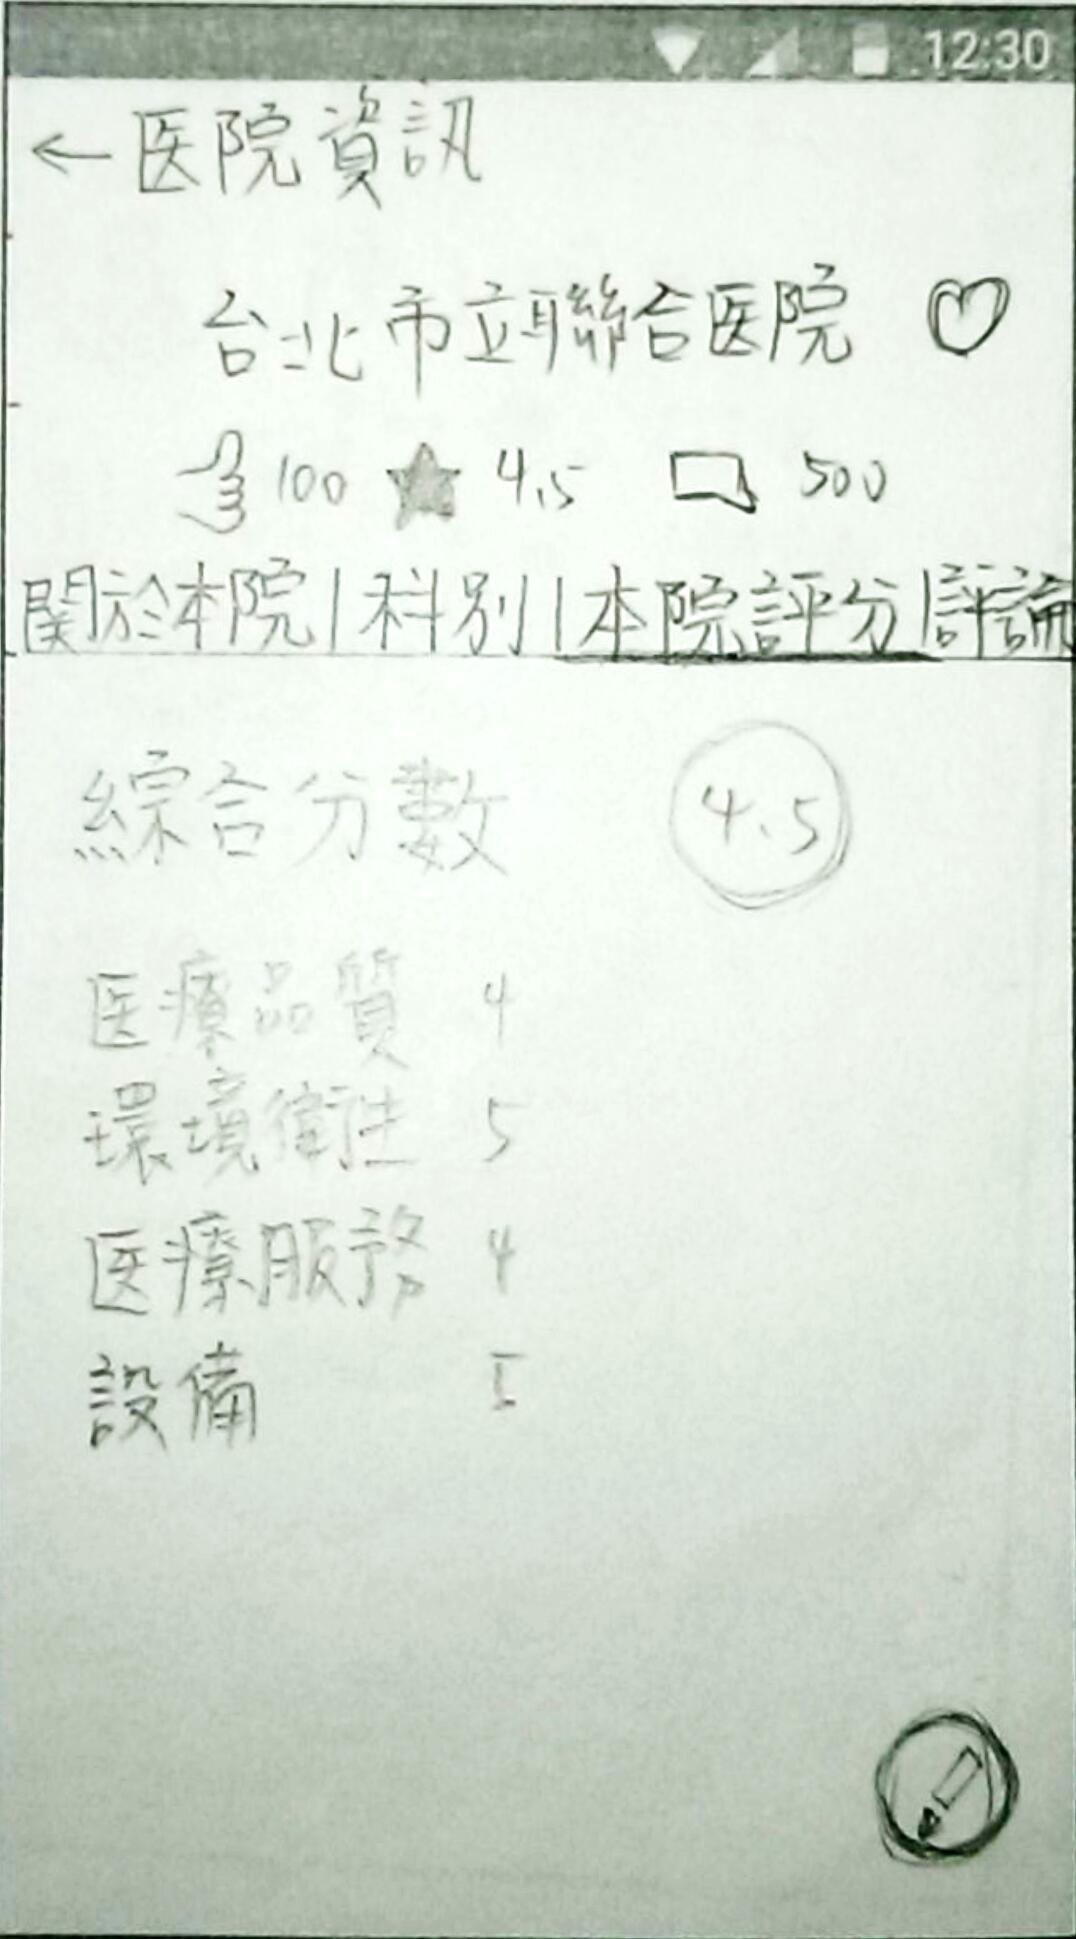 12:30
←医院資訊
台北市立聯合医院
100 4.5 500
関於本院|科別|本院評分|評論
綜合分數 4.5
医療品質 4
環境衛生 5
医療服務 4
設備 5